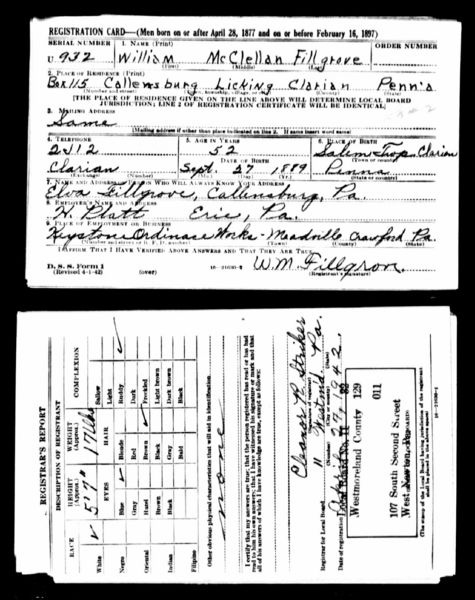 REGISTRATION CARD—(Men born on or after April 28, 1877 and on or before February 16, 1897)
SERIAL NUMBER 1. NAME (Print) ORDER NUMBER
U 932 William McClellan Fillgrove
(First) (Middle) (Last)
2. PLACE OF RESIDENCE (Print)
Box 115 Callensburg Licking Clarian Penn'a
(Number and street) (Town, township, village, or city) (County) (State)
[THE PLACE OF RESIDENCE GIVEN ON THE LINE ABOVE WILL DETERMINE LOCAL BOARD
JURISDICTION; LINE 2 OF REGISTRATION CERTIFICATE WILL BE IDENTICAL]
3. MAILING ADDRESS
Same
[Mailing address if other than place indicated on line 2. If same insert word same]
4. TELEPHONE 5. AGE IN YEARS 6. PLACE OF BIRTH
2312 52 Salem Twp. Clarian
DATE OF BIRTH (Town or county)
Clarian Sept. 27 1889 Penna
(Exchange) (Number) (Mo.) (Day) (Yr.) (State or country)
7. NAME AND ADDRESS OF PERSON WHO WILL ALWAYS KNOW YOUR ADDRESS
Elva Fillgrove, Callensburg, Pa.
8. EMPLOYER'S NAME AND ADDRESS
H. Platt Erie, Pa.
9. PLACE OF EMPLOYMENT OR BUSINESS
Keystone Ordinance Works - Meadville Crawford Pa.
(Number and street or R. F. D. number) (Town) (County) (State)
I AFFIRM THAT I HAVE VERIFIED ABOVE ANSWERS AND THAT THEY ARE TRUE.
D. S. S. Form 1
(Revised 4-1-42) (over) 16—21630-2
W. M. Fillgrov.
(Registrant's signature)
REGISTRAR'S REPORT
DESCRIPTION OF REGISTRANT
RACE
White ✓
Negro
Oriental
Indian
Filipino
HEIGHT (Approx.) 5' 7"
WEIGHT (Approx.) 171 lbs
EYES
Blue ✓
Gray
Hazel
Brown
Black
HAIR
Blonde
Red
Brown ✓
Black
Gray
Bald
COMPLEXION
Sallow
Light
Ruddy ✓
Dark
Freckled
Light brown
Dark brown
Black
Other obvious physical characteristics that will aid in identification
none
I certify that my answers are true; that the person registered has read or has had
read to him his own answers; that I have witnessed his signature or mark and that
all of his answers of which I have knowledge are true, except as follows:
Eleanor P. Striker
(Signature of registrar)
Registrar for Local Board 11 Westmld. Pa.
(Number) (City or county) (State)
Date of registration
Westmoreland County 129
011
107 South Second Street
(The stamp of the Local Board having jurisdiction of the registrant
shall be placed in the above space)